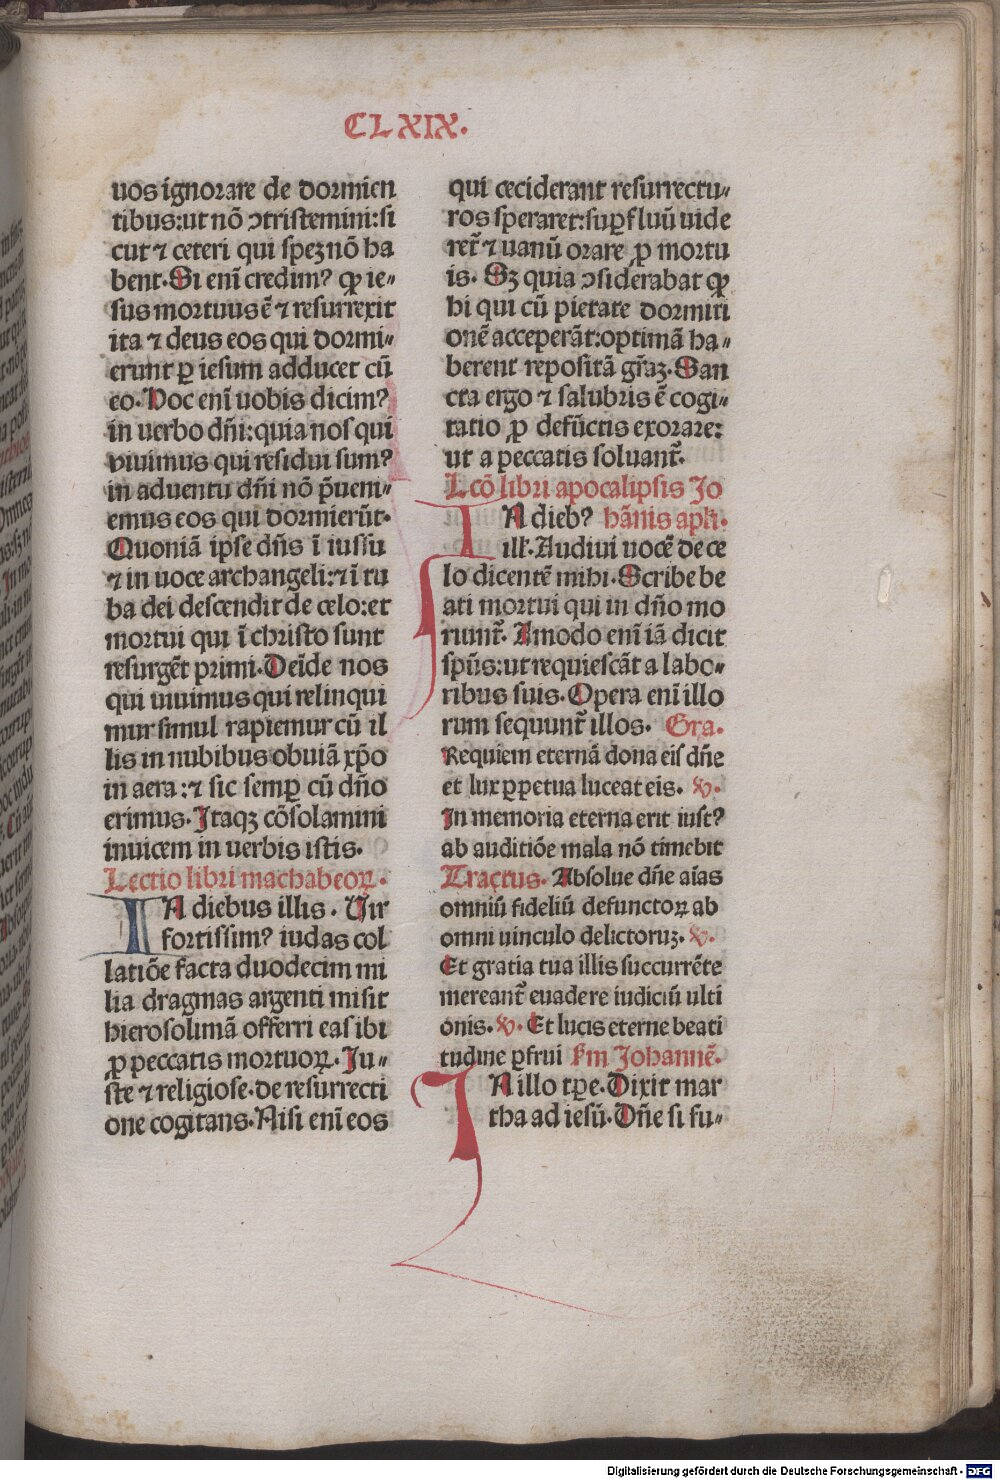 CLXIX.
uos ignorare de dormien
tibus:ut nō ↄtristemini:si
cut ⁊ ceteri qui spezꝫ nō ha
bent.Si enī credimꝰ ꝙ ie⸗
sus mortuus ē ⁊ resurrexit
ita ⁊ deus eos qui dormi⸗
erunt ꝑ iesum adducet cū
eo.Hoc enī uobis dicimꝰ
in uerbo dn̄i:quia nos qui
viuimus qui residui sumꝰ
in aduentu dn̄i nō p̄ueni⸗
emus eos qui dormierūt.
Quoniā ipse dn̄s ī iussu
⁊ in uoce archangeli:⁊ ī tu
ba dei descendit de celo:et
mortui qui ī christo sunt
resurgēt primi.Deīde nos
qui uiuimus qui relinqui
mur simul rapiemur cū il
lis in nubibus obuiā xp̄o
in aera:⁊ sic semꝑ cū dn̄o
erimus.Itaqꝫ cōsolamini
inuicem in uerbis istis.
Lectio libri machabeoꝝ.
IN diebus illis. Vir
fortissimꝰ iudas col
latiōe facta duodecim mi
lia dragmas argenti misit
hierosolimā offerri eas ibi
ꝓ peccatis mortuoꝝ.Iu⸗
ste ⁊ religiose.de resurrecti
one cogitans.Nisi enī eos
qui ceciderant resurrectu⸗
ros speraret:suꝑfluū uide
ret̄ ⁊ uanū orare ꝓ mortu
is. Sꝫ quia ↄsiderabat ꝙ
hi qui cū pietate dormiti
onē acceperāt:optimā ha⸗
berent repositā gr̄aꝫ.San
cta ergo ⁊ salubris ē cogi⸗
tatio ꝓ defūctis exorare:
ut a peccatis soluant̄.
Lcō libri apocalipsis Jo
IN diebꝰ hānis apl̄i.
ill̄.Audiui uocē de ce
lo dicentē mihi.Scribe be
ati mortui qui in dn̄o mo
riunt̄. Amodo enī iā dicit
spūs:ut requiescāt a labo⸗
ribus suis.Opera enī illo
rum sequunt̄ illos. Gra.
Requiem eternā dona eis dn̄e
et lux ꝑpetua luceat eis. v.
In memoria eterna erit iustꝰ
ab auditiōe mala nō timebit
Tractus. Absolue dn̄e aīas
omniū fideliū defunctoꝝ ab
omni uinculo delictoruꝫ. v.
Et gratia tua illis succurrēte
mereant̄ euadere iudiciū ulti
onis. v. Et lucis eterne beati
tudine ꝑfrui Scd̄m Johannē.
IN illo tꝑe.Dixit mar
tha ad iesū.Dn̄e si fu⸗
Digitalisierung gefördert durch die Deutsche Forschungsgemeinschaft - DFG